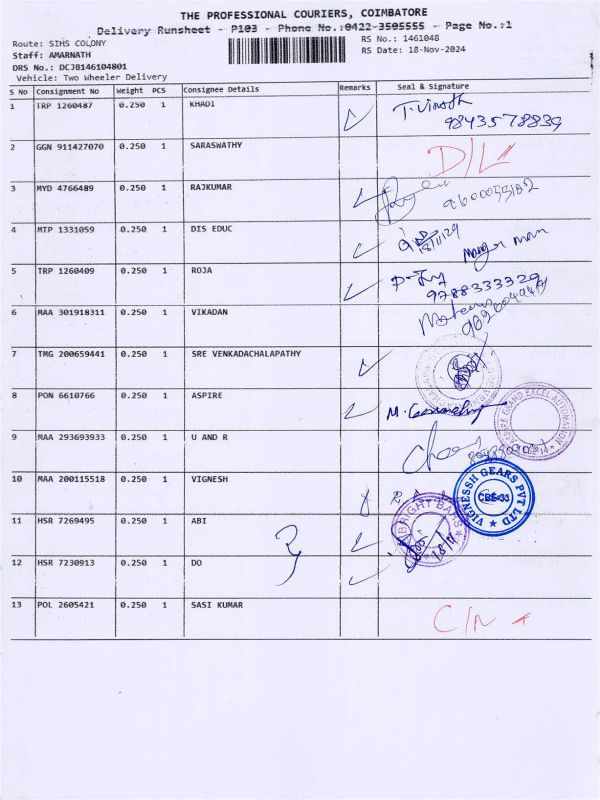 THE PROFESSIONAL COURIERS, COIMBATORE
Delivery Runsheet - P103 - Phone No.:0422-3505555 - Page No.:1
Route: SIHS COLONY
RS No.: 1461048
Staff: AMARNATH
RS Date: 18-Nov-2024
DRS No.: DCJB146104801
Vehicle: Two Wheeler Delivery
S No Consignment No Weight PCS Consignee Details Remarks Seal & Signature
1 TRP 1260487 0.250 1 KHADI T. Vinoth
9843578839
2 GGN 911427070 0.250 1 SARASWATHY D/L
3 MYD 4766489 0.250 1 RAJKUMAR
4 MTP 1331059 0.250 1 DIS EDUC 18/11/24
5 TRP 1260409 0.250 1 ROJA
9788333329
6 MAA 301918311 0.250 1 VIKADAN
7 TMG 200659441 0.250 1 SRE VENKADACHALAPATHY
8 PON 6610766 0.250 1 ASPIRE
ASPIRE GRAND EXCEL AUTOMATION
9 MAA 293693933 0.250 1 U AND R
10 MAA 200115518 0.250 1 VIGNESH
VIGNESSH GEARS PVT LTD
CBE-33
11 HSR 7269495 0.250 1 ABI
BRIGHT BARS
12 HSR 7230913 0.250 1 DO
13 POL 2605421 0.250 1 SASI KUMAR C/N